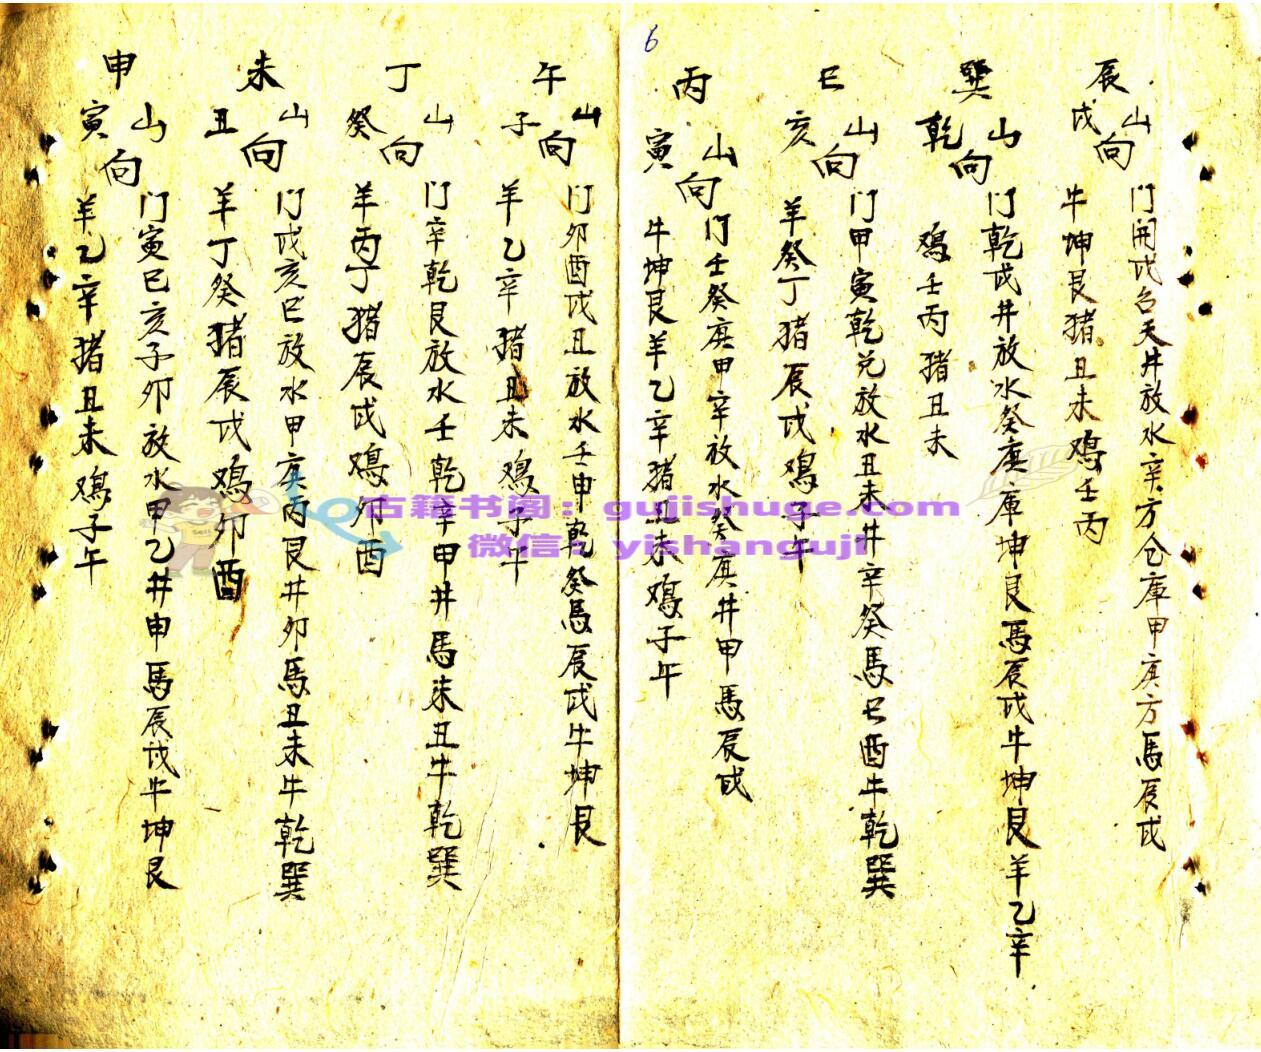 6
辰山戌向
门开戌台天井放水辛方仓庫甲庚方馬辰戌
牛坤艮猪丑未鸡壬丙
巽山乾向
门乾戌井放水癸庚庫坤艮馬辰戌牛坤艮羊乙辛
鸡壬丙猪丑未
巳山亥向
门甲寅乾兑放水丑未井辛癸馬巳酉牛乾巽
羊癸丁猪辰戌鸡子午
丙山寅向
门壬癸庚甲辛放水癸庚井甲馬辰戌
牛坤艮羊乙辛猪丑未鸡子午
午山子向
门卯酉戌丑放水壬申乾癸馬辰戌牛坤艮
羊乙辛猪丑未鸡子午
丁山癸向
门辛乾艮放水壬乾辛甲井馬未丑牛乾巽
羊丙丁猪辰戌鸡卯酉
未山丑向
门戌亥巳放水甲庚丙艮井卯馬丑未牛乾巽
羊丁癸猪辰戌鸡卯酉
申山寅向
门寅巳亥子卯放水甲乙井申馬辰戌牛坤艮
羊乙辛猪丑未鸡子午
古籍书阁：gujishuge.com
微信：yishanguji